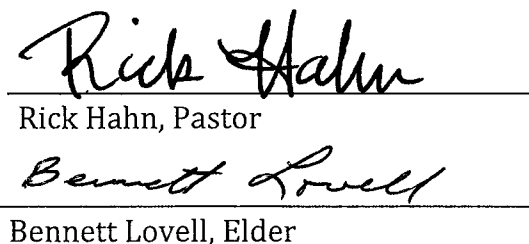 Rick Hahn
Rick Hahn, Pastor
Bennett Lovell
Bennett Lovell, Elder